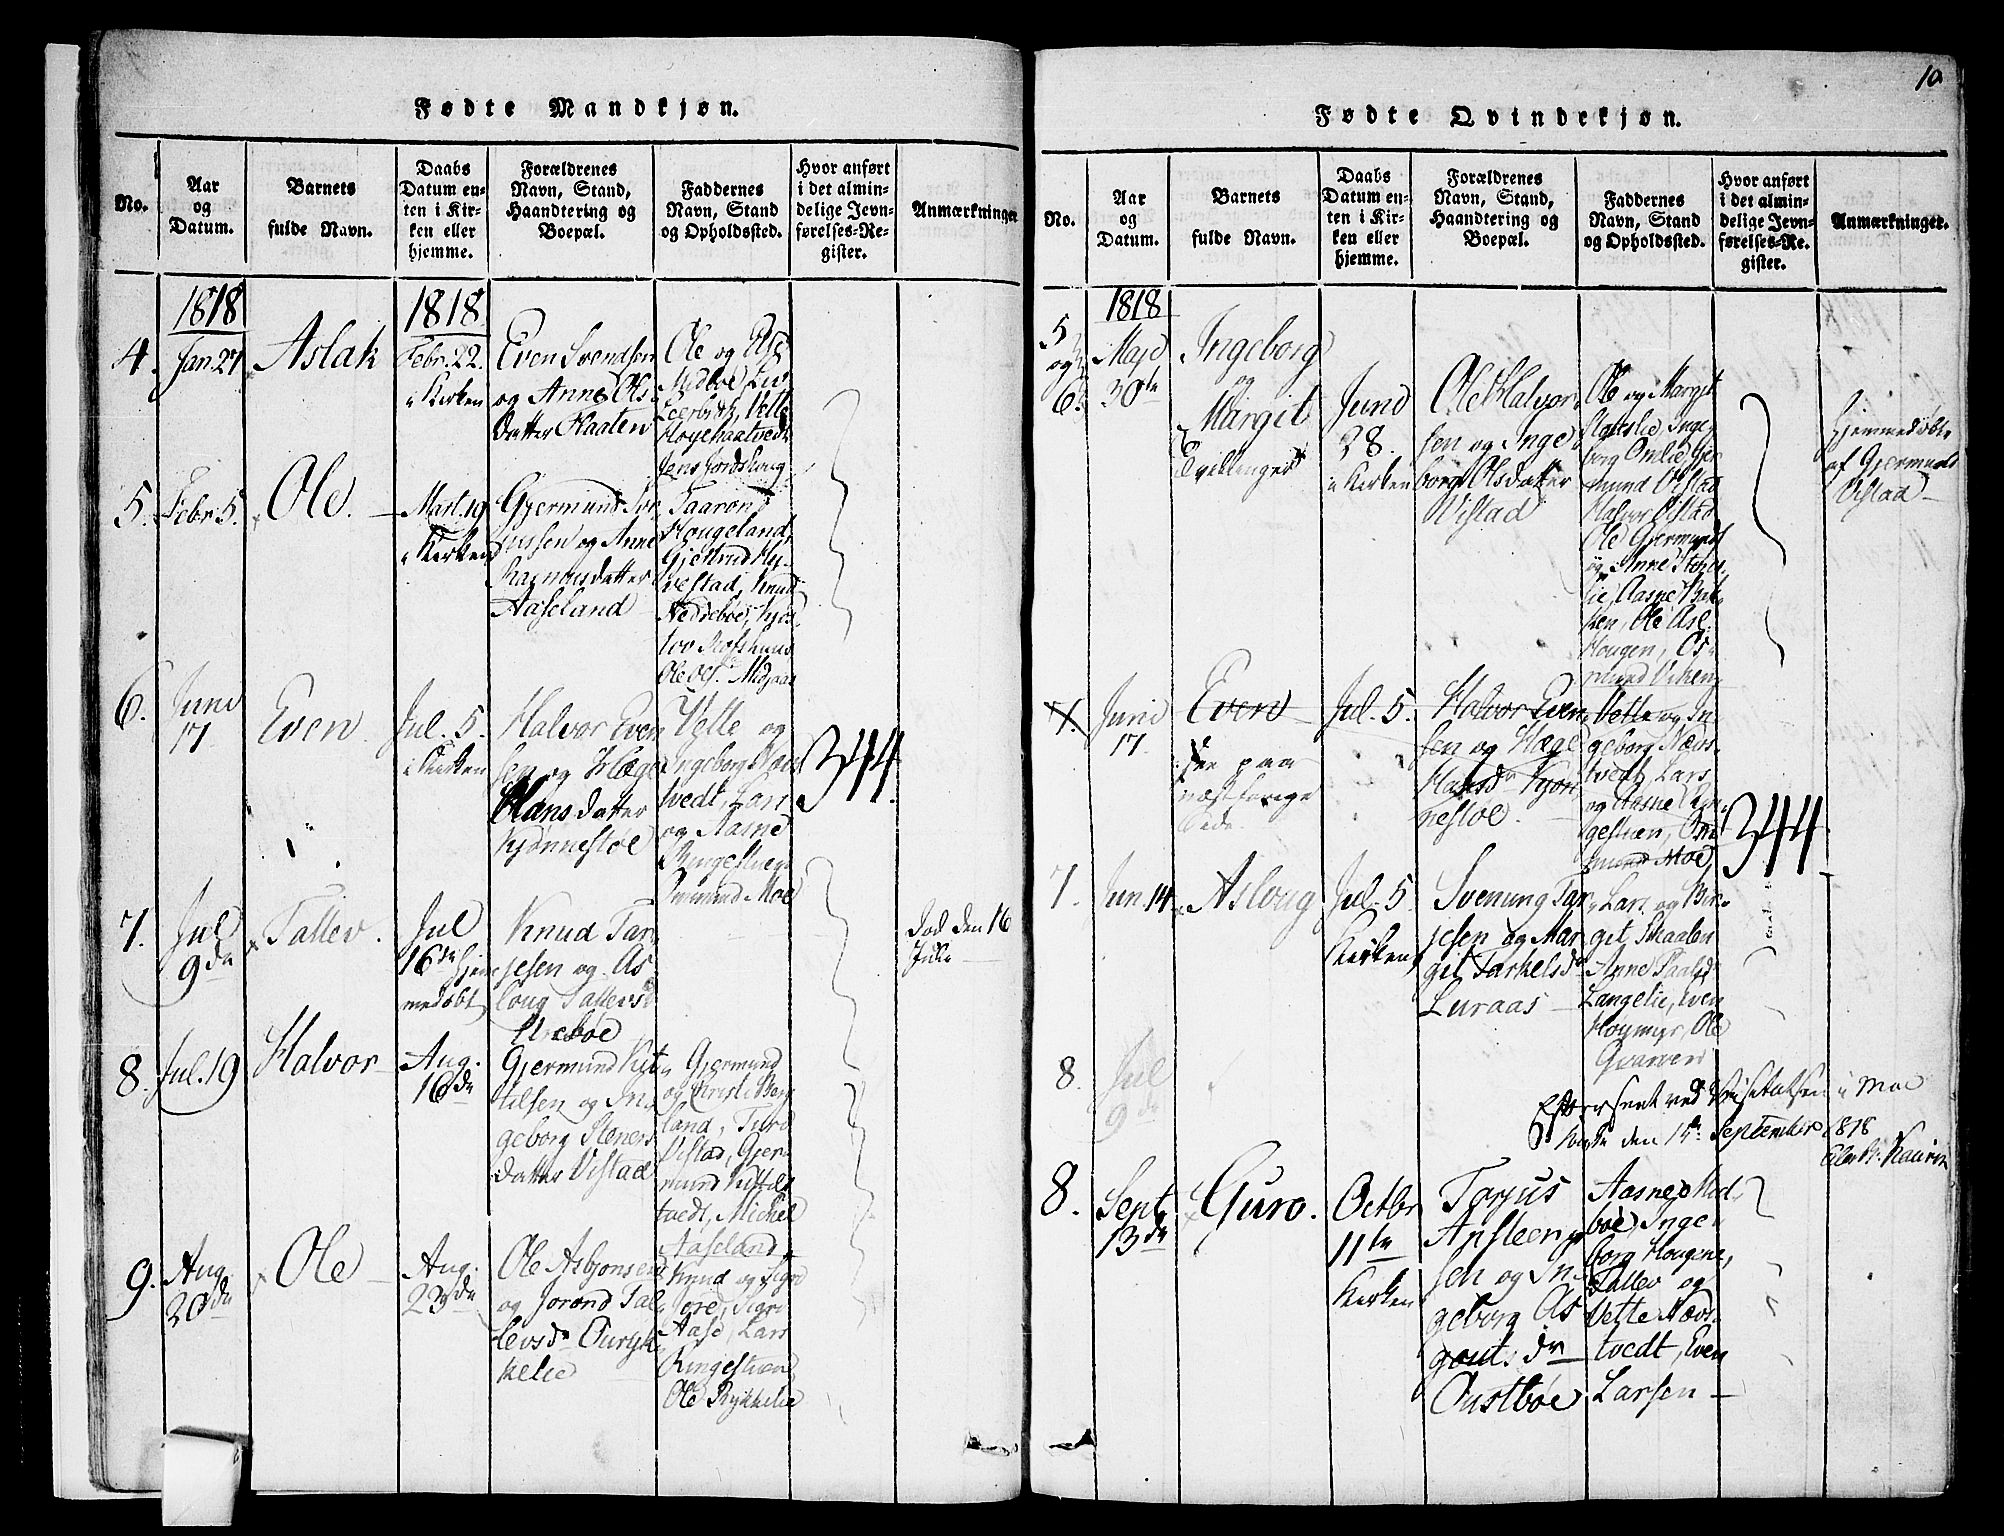 Fødte Mandkjøn.
No.
Aar
og
Datum.
Barnets
fulde Navn.
Daabs
Datum en-
ten i Kir-
ken eller
hjemme.
Forældrenes
Navn, Stand,
Haandtering og
Boepæl.
Faddernes
Navn, Stand
og Opholdssted.
Hvor anført
i det almin-
delige Jevn-
førelses-Re-
gister.
Anmærkninger
1818
4.
Jan. 27
Aslak
1818
Febr. 22.
i Kirken
Even Svendsen
og Anne Ols
datter Haaten
Ole og
Midboe, Liv
Vette
5.
Febr. 5.
Ole.
Mart. 19
i Kirken
Gjermund Tor
jussen og Anne
datter
Aaseland
Taaron
Hougeland,
Knud
Nedreboe,
Ole Ols. Midjaas
6.
Juni
17
Even.
Jul. 5.
i Kirken
Halvor Even
sen og Hæge
Hans datter
Kjønnestøe
Vette og
Ingeborg Næus
tvedt, Lars
og Aasne
Ringestveen
Omund Moe
344.
7.
Jul
9de
Tallev.
Jul
16de hjem
medøbt
Knud Tar
jesen og As
loug Tallevsd
Urebøe
Død den 16
Julii
8.
Jul. 19
Halvor
Aug:
16de
Gjermund Kit
tilsen og In
geborg Steners
datter Vistad
Gjermund
og Kirsti Berg
land, Turo
Vistad, Gjer
mund Kittils
tvedt, Michel
Aaseland
9.
Aug
20de
Ole
Aug:
23de
Ole Asbjonsen
og Jorond Tal
levsdr Ouryk
kelie
Knud og Signe
Jore, Sigri
Aase, Lars
Ringestveen
Ole Rykkelie
10
Fødte Qvindekjøn.
No.
Aar
og
Datum.
Barnets
fulde Navn.
Daabs
Datum en-
ten i Kir-
ken eller
hjemme.
Forældrenes
Navn, Stand,
Haandtering og
Boepæl.
Faddernes
Navn, Stand
og Opholdssted.
Hvor anført
i det almin-
delige Jevn-
førelses-Re-
gister.
Anmærkninger.
1818
5
og
6.
Maji
30te
Ingeborg
og
Margit
Tvillinger
Juni
28.
i Kirken
Ole Halvor
sen og Inge
borg Olsdatter
Vistad
Ole og Margit
Inge
borg Omlie, Gjer
mund Vistad
Halvor Vistad
Ole Gjermunds
og Anne
lie, Aasne Bak
ken, Ole Asl.
Hougen, Os
mund Viken
hjemmedøbte
af Gjermund
Vistad
7.
Juni
17
Even
See paa
næstforrige
Side.
Jul. 5.
Halvor Even
sen og Hæge
Hansdr Kjøn
nestøe.
Vette og In
geborg Næus
tvedt, Lars
og Aasne Rin
gestveen, Om
mund Moe
344
7.
Jun. 14
Asloug
Jul. 5.
Kirken
Svenung Tar
jesen og Mar
git Tarkelsdr
Luraas
Lars og Mar
git Skaalen
Anne Paalsd
Langelie, Even
Hoymyr, Ole
Qvarven
8.
Jul
9de
Efterseet ved Visitatsen i Moe
Kirke den 15de September 1818
8.
Sept
13de
Guro.
Octbr
11te
Kirken
Torjus
Ansteen
sen og In
geborg As
gout. dr
Oustbøe
Aasne Mid
boe, Inge
borg Hougene,
Tallev og
Vette Næus
tvedt, Even
Larsen